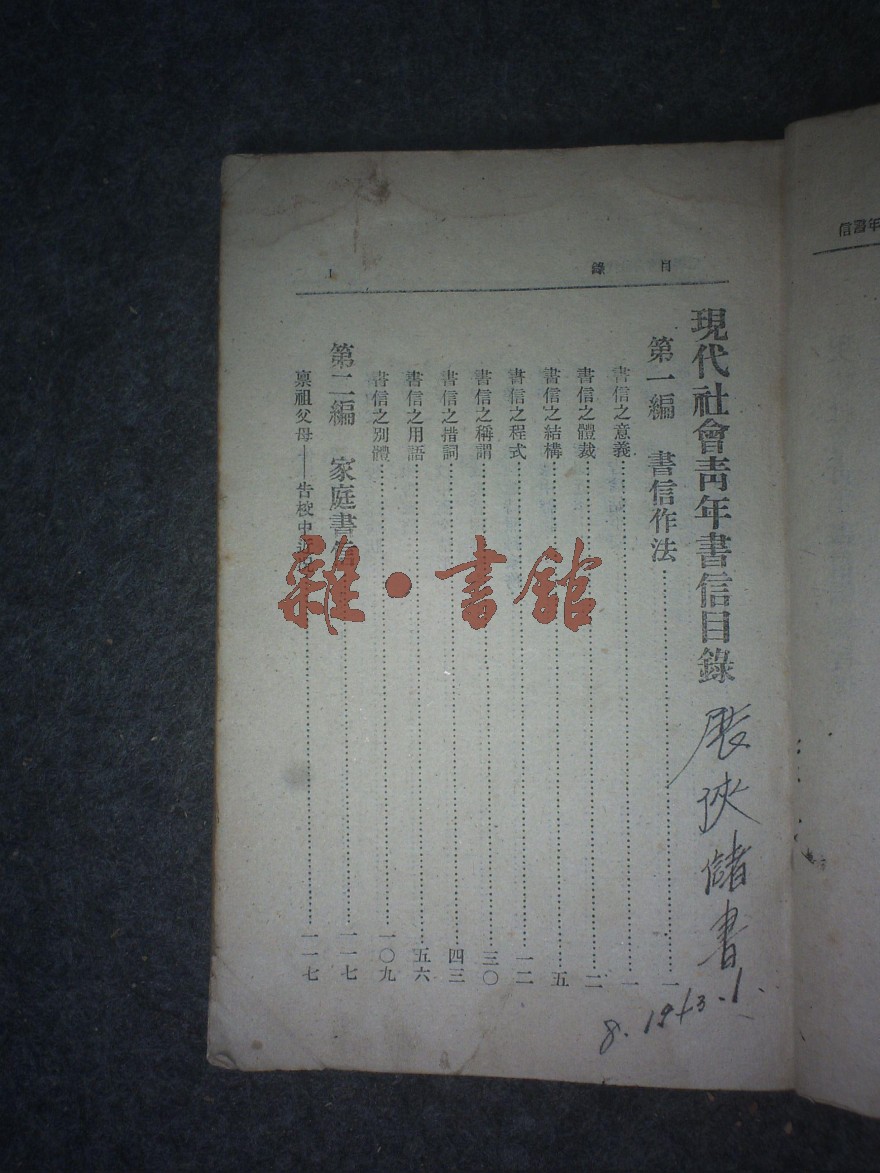 目錄
1
現代社會靑年書信目錄
第一編 書信作法……一
書信之意義……一
書信之體裁……二
書信之結構……五
書信之程式……一二
書信之稱謂……三〇
書信之措詞……四三
書信之用語……五六
書信之別體……一〇九
第二編 家庭書信……一一七
禀祖父母——告校中近……一一七
儲書
雜·書館
年書信